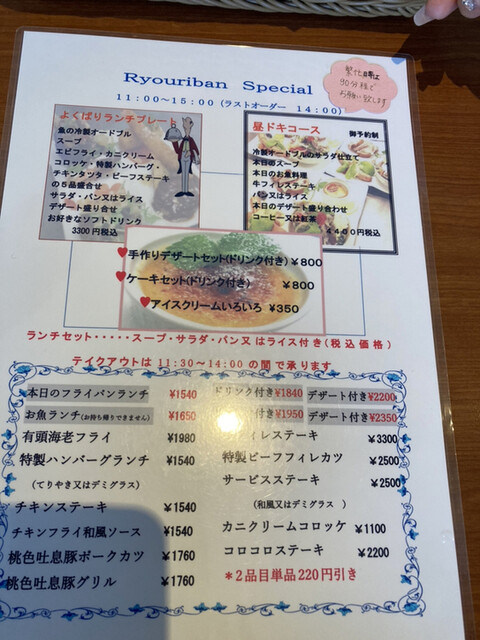 Ryouriban Special
繁忙時は
90分程で
お願い致します
11:00〜15:00 (ラストオーダー 14:00)
よくばりランチプレート
魚の冷製オードブル
スープ
エビフライ・カニクリーム
コロッケ・特製ハンバーグ・
チキンタツタ・ビーフステーキ
の5品盛合せ
サラダ・パン又はライス
デザート盛り合せ
お好きなソフトドリンク
3300円税込
昼ドキコース 御予約制
冷製オードブルのサラダ仕立て
本日のスープ
本日のお魚料理
牛フィレステーキ
パン又はライス
本日のデザート盛り合わせ
コーヒー又は紅茶
4400円税込
♥手作りデザートセット(ドリンク付き) ¥800
♥ケーキセット(ドリンク付き) ¥800
♥アイスクリームいろいろ ¥350
ランチセット・・・・・スープ・サラダ・パン又はライス付き(税込価格)
テイクアウトは 11:30〜14:00 の間で承ります
本日のフライパンランチ ¥1540 ドリンク付き¥1840 デザート付き¥2200
お魚ランチ(お持ち帰りできません) ¥1650 付き¥1950 デザート付き¥2350
有頭海老フライ ¥1980
特製ハンバーグランチ ¥1540
(てりやき又はデミグラス)
チキンステーキ ¥1540
チキンフライ和風ソース ¥1540
桃色吐息豚ポークカツ ¥1760
桃色吐息豚グリル ¥1760
ィレステーキ ¥3300
特製ビーフフィレカツ ¥2500
サービスステーキ ¥2500
(和風又はデミグラス )
カニクリームコロッケ ¥1100
コロコロステーキ ¥2200
*2品目単品220円引き